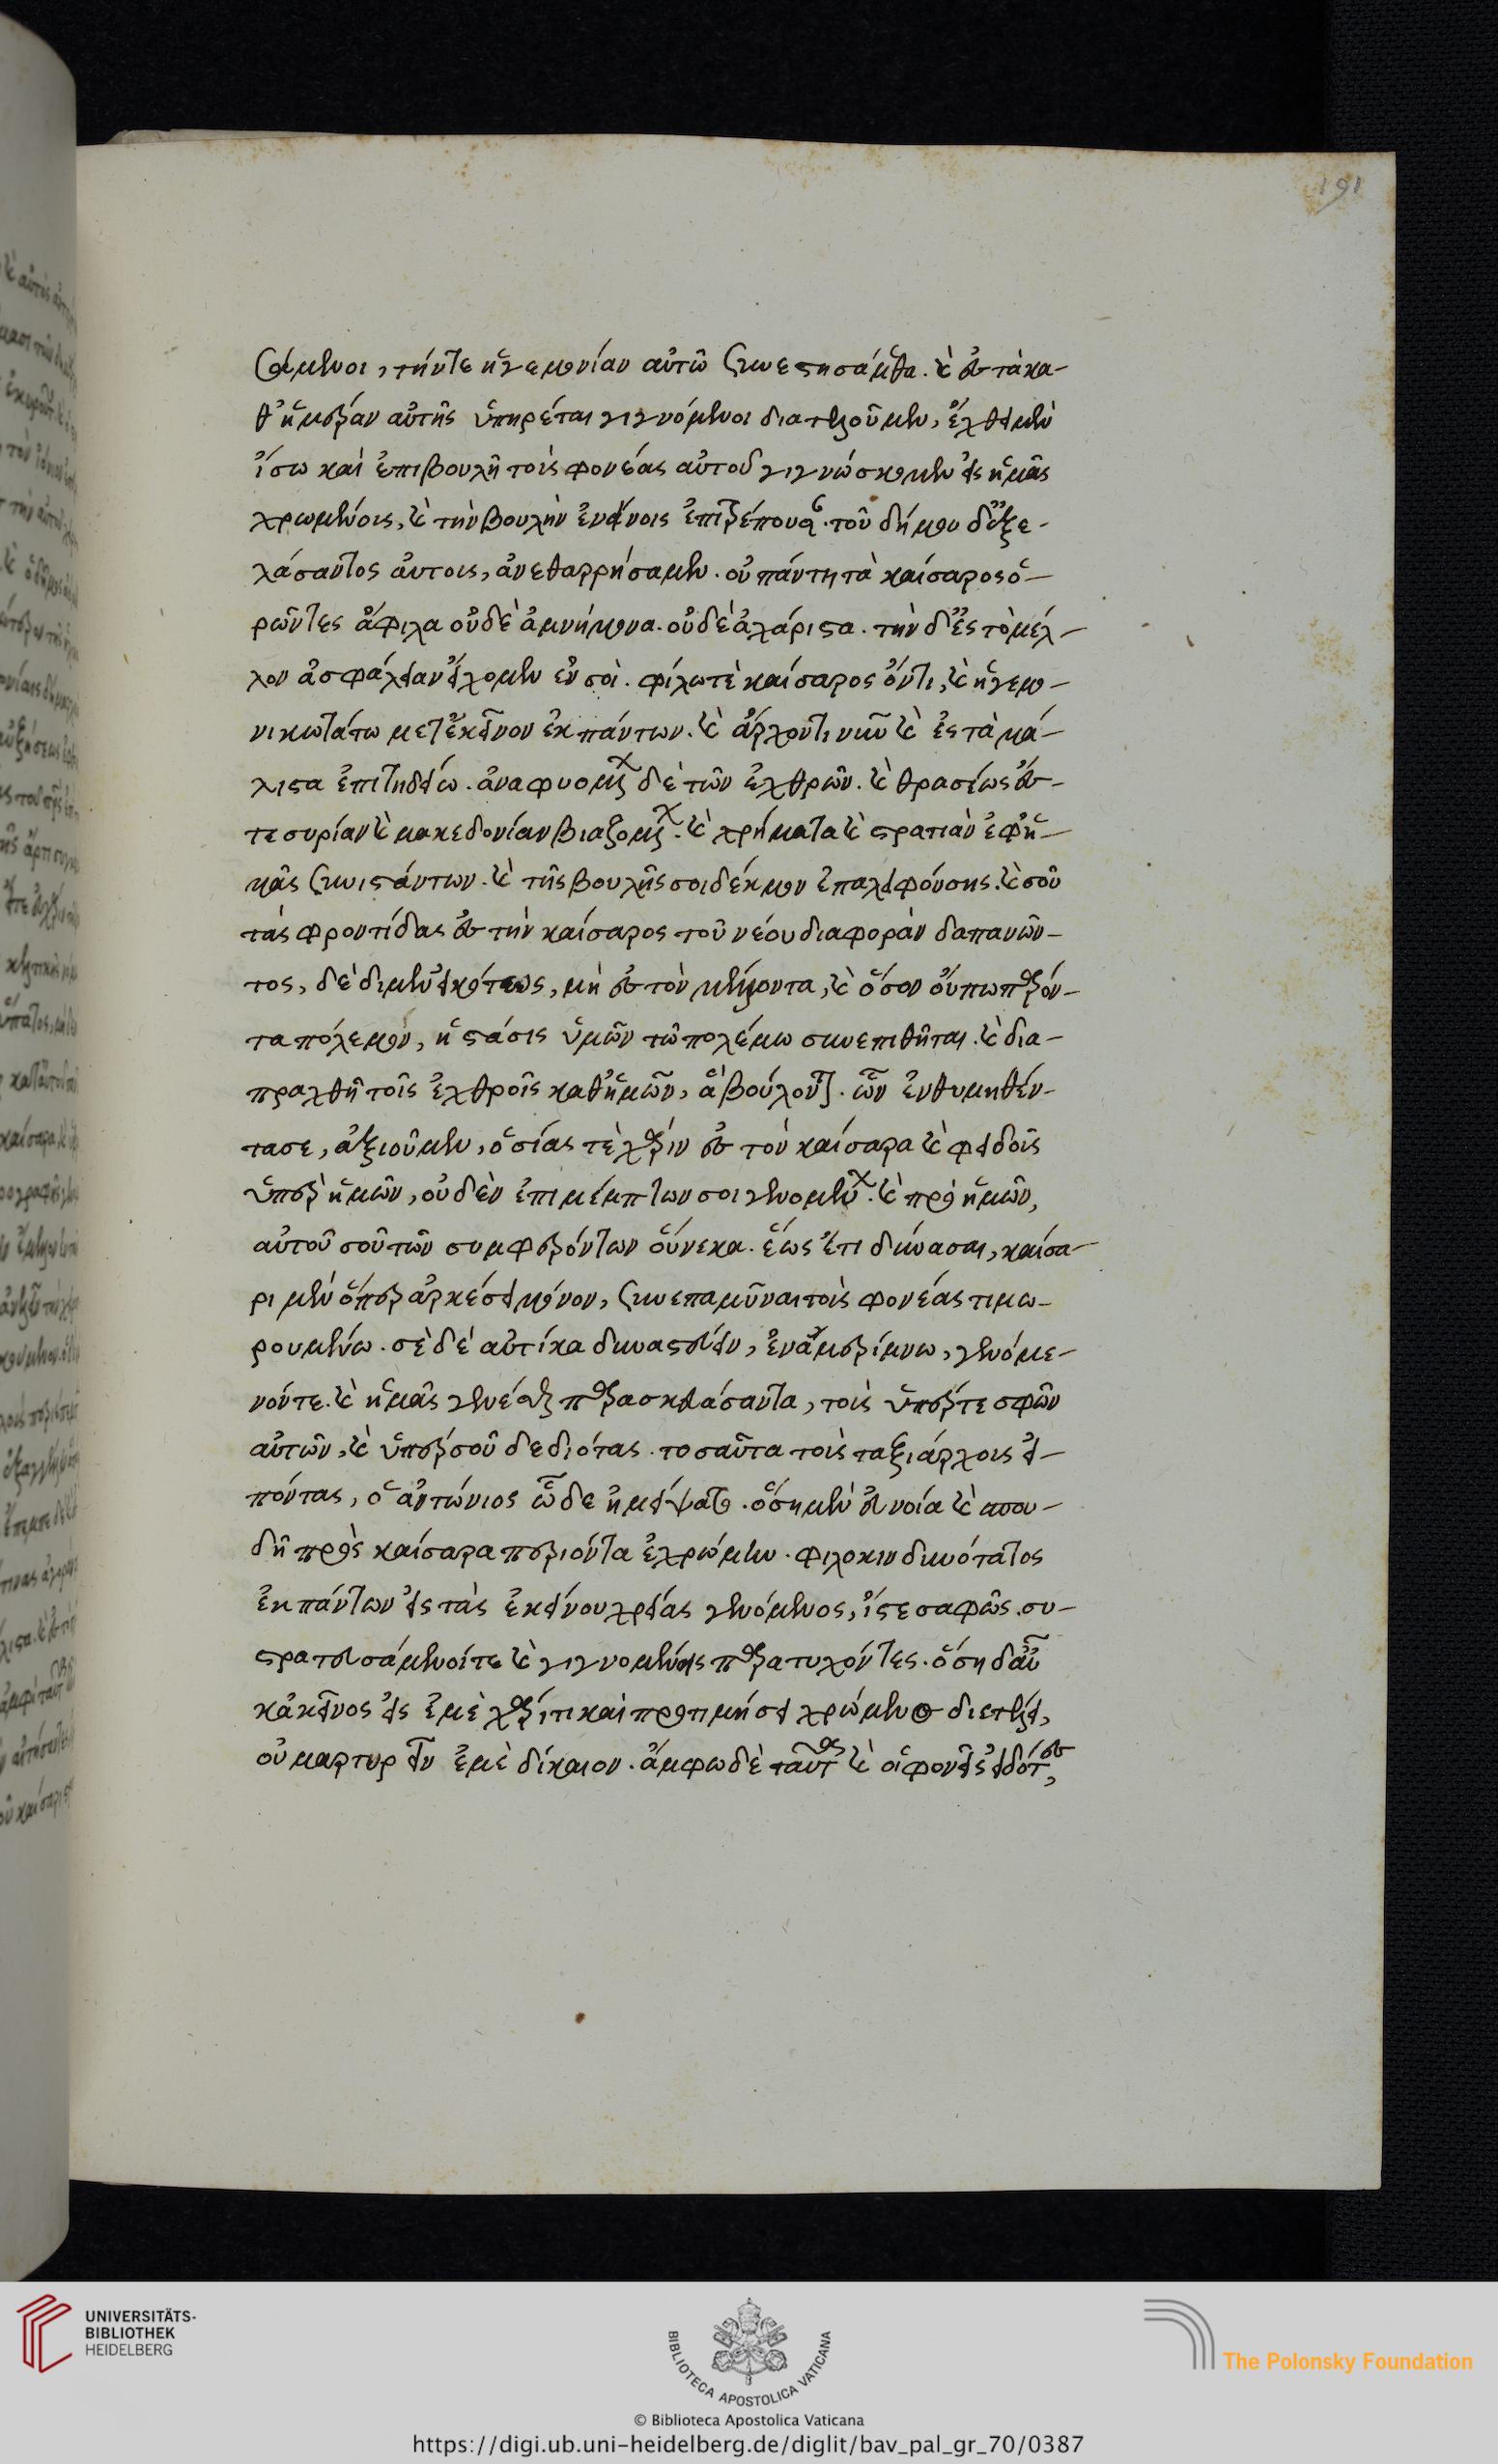 191
σάμενοι, τήν τε ἡγεμονίαν αὐτῷ συνεστησάμεθα. καὶ ἐς τὰ κα-
θ' ἡμέραν αὐτῆς ὑπηρέται γιγνόμενοι διατελοῦμεν, ἔχθει μὲν
ἴσῳ καὶ ἐπιβουλῇ τοὺς φονέας αὐτοῦ γιγνώσκομεν ἐς ἡμᾶς
χρωμένους, καὶ τὴν βουλὴν ἐκείνοις ἐπιτρέπουσαν. τοῦ δήμου δ' ἐξε-
λάσαντος αὐτοὺς, ἀνεθαρρήσαμεν. οὐ πάντη τὰ καίσαρος ὁ-
ρῶντες ἄφιλα οὐδὲ ἀμνήμονα. οὐδὲ ἀχάριστα. τὴν δ' ἐς τὸ μέλ-
λον ἀσφάλειαν εἴχομεν ἐν σοὶ. φίλῳ τὲ καίσαρος ὄντι, καὶ ἡγεμο-
νικωτάτῳ μετ' ἐκεῖνον ἐκ πάντων. καὶ ἄρχοντι νῦν καὶ ἐς τὰ μά-
λιστα ἐπιτηδείῳ. ἀναφυομένων δὲ τῶν ἐχθρῶν. καὶ θρασέως ἔς
τε συρίαν καὶ μακεδονίαν βιαζομένων. καὶ χρήματα καὶ στρατιὰν ἐφ' ἡ-
μᾶς συνιστάντων. καὶ τῆς βουλῆς σοι δέκμον ἐπαλειφούσης. καὶ σοῦ
τὰς φροντίδας ἐς τὴν καίσαρος τοῦ νέου διαφορὰν δαπανῶν-
τος, δέδιμεν εἰκότως, μὴ ἐς τὸν μείζοντα, καὶ ὅσον οὔπω παρόν-
τα πόλεμον, ἡ στάσις ὑμῶν τῷ πολέμῳ συνεπιθῆται. καὶ δια-
πραχθῇ τοῖς ἐχθροῖς καθ' ἡμῶν, ἃ βούλονται. ὧν ἐνθυμηθέν-
τα σε, ἀξιοῦμεν, ὁσίας τὲ χάριν ἐς τὸν καίσαρα καὶ φειδοῖς
ὑπὲρ ἡμῶν, οὐδὲν ἐπιμέμπτων σοι γενομένων. καὶ πρὸ ἡμῶν,
αὐτοῦ σοῦ τῶν συμφερόντων οὕνεκα. ἕως ἔτι δύνασαι, καίσα-
ρι μὲν ὅπερ ἀρκέσει μόνον, συνεπαμῦναι τοὺς φονέας τιμω-
ρουμένῳ. σὲ δὲ αὐτίκα δυναστεύειν, ἐν ἀμερίμνῳ, γενόμε-
νόν τε. καὶ ἡμᾶς γενέσθαι παρασκευάσαντα, τοὺς ὑπέρ τε σφῶν
αὐτῶν, καὶ ὑπὲρ σοῦ δεδιότας. τοσαῦτα τοὺς ταξιάρχους εἰ-
πόντας, ὁ ἀντώνιος ὧδε ἠμείψατο. ὅση μὲν εὐνοία καὶ σπου-
δῇ πρὸς καίσαρα περιόντα ἐχρώμην. φιλοκινδυνότατος
ἐκ πάντων ἐς τὰς ἐκείνου χρείας γενόμενος, ἴστε σαφῶς. συ-
στρατευσάμενοί τε καὶ γιγνομένοις παρατυχόντες. ὅση δ' αὖ
κἀκεῖνος ἐς ἐμὲ χάριτι καὶ προτιμήσει χρώμενος διετέλει,
οὐ μαρτυρεῖν ἐμὲ δίκαιον. ἄμφω δὲ ταῦτα καὶ οἱ φονεῖς εἰδότες,
UNIVERSITÄTS-
BIBLIOTHEK
HEIDELBERG
BIBLIOTECA APOSTOLICA VATICANA
The Polonsky Foundation
© Biblioteca Apostolica Vaticana
https://digi.ub.uni-heidelberg.de/diglit/bav_pal_gr_70/0387